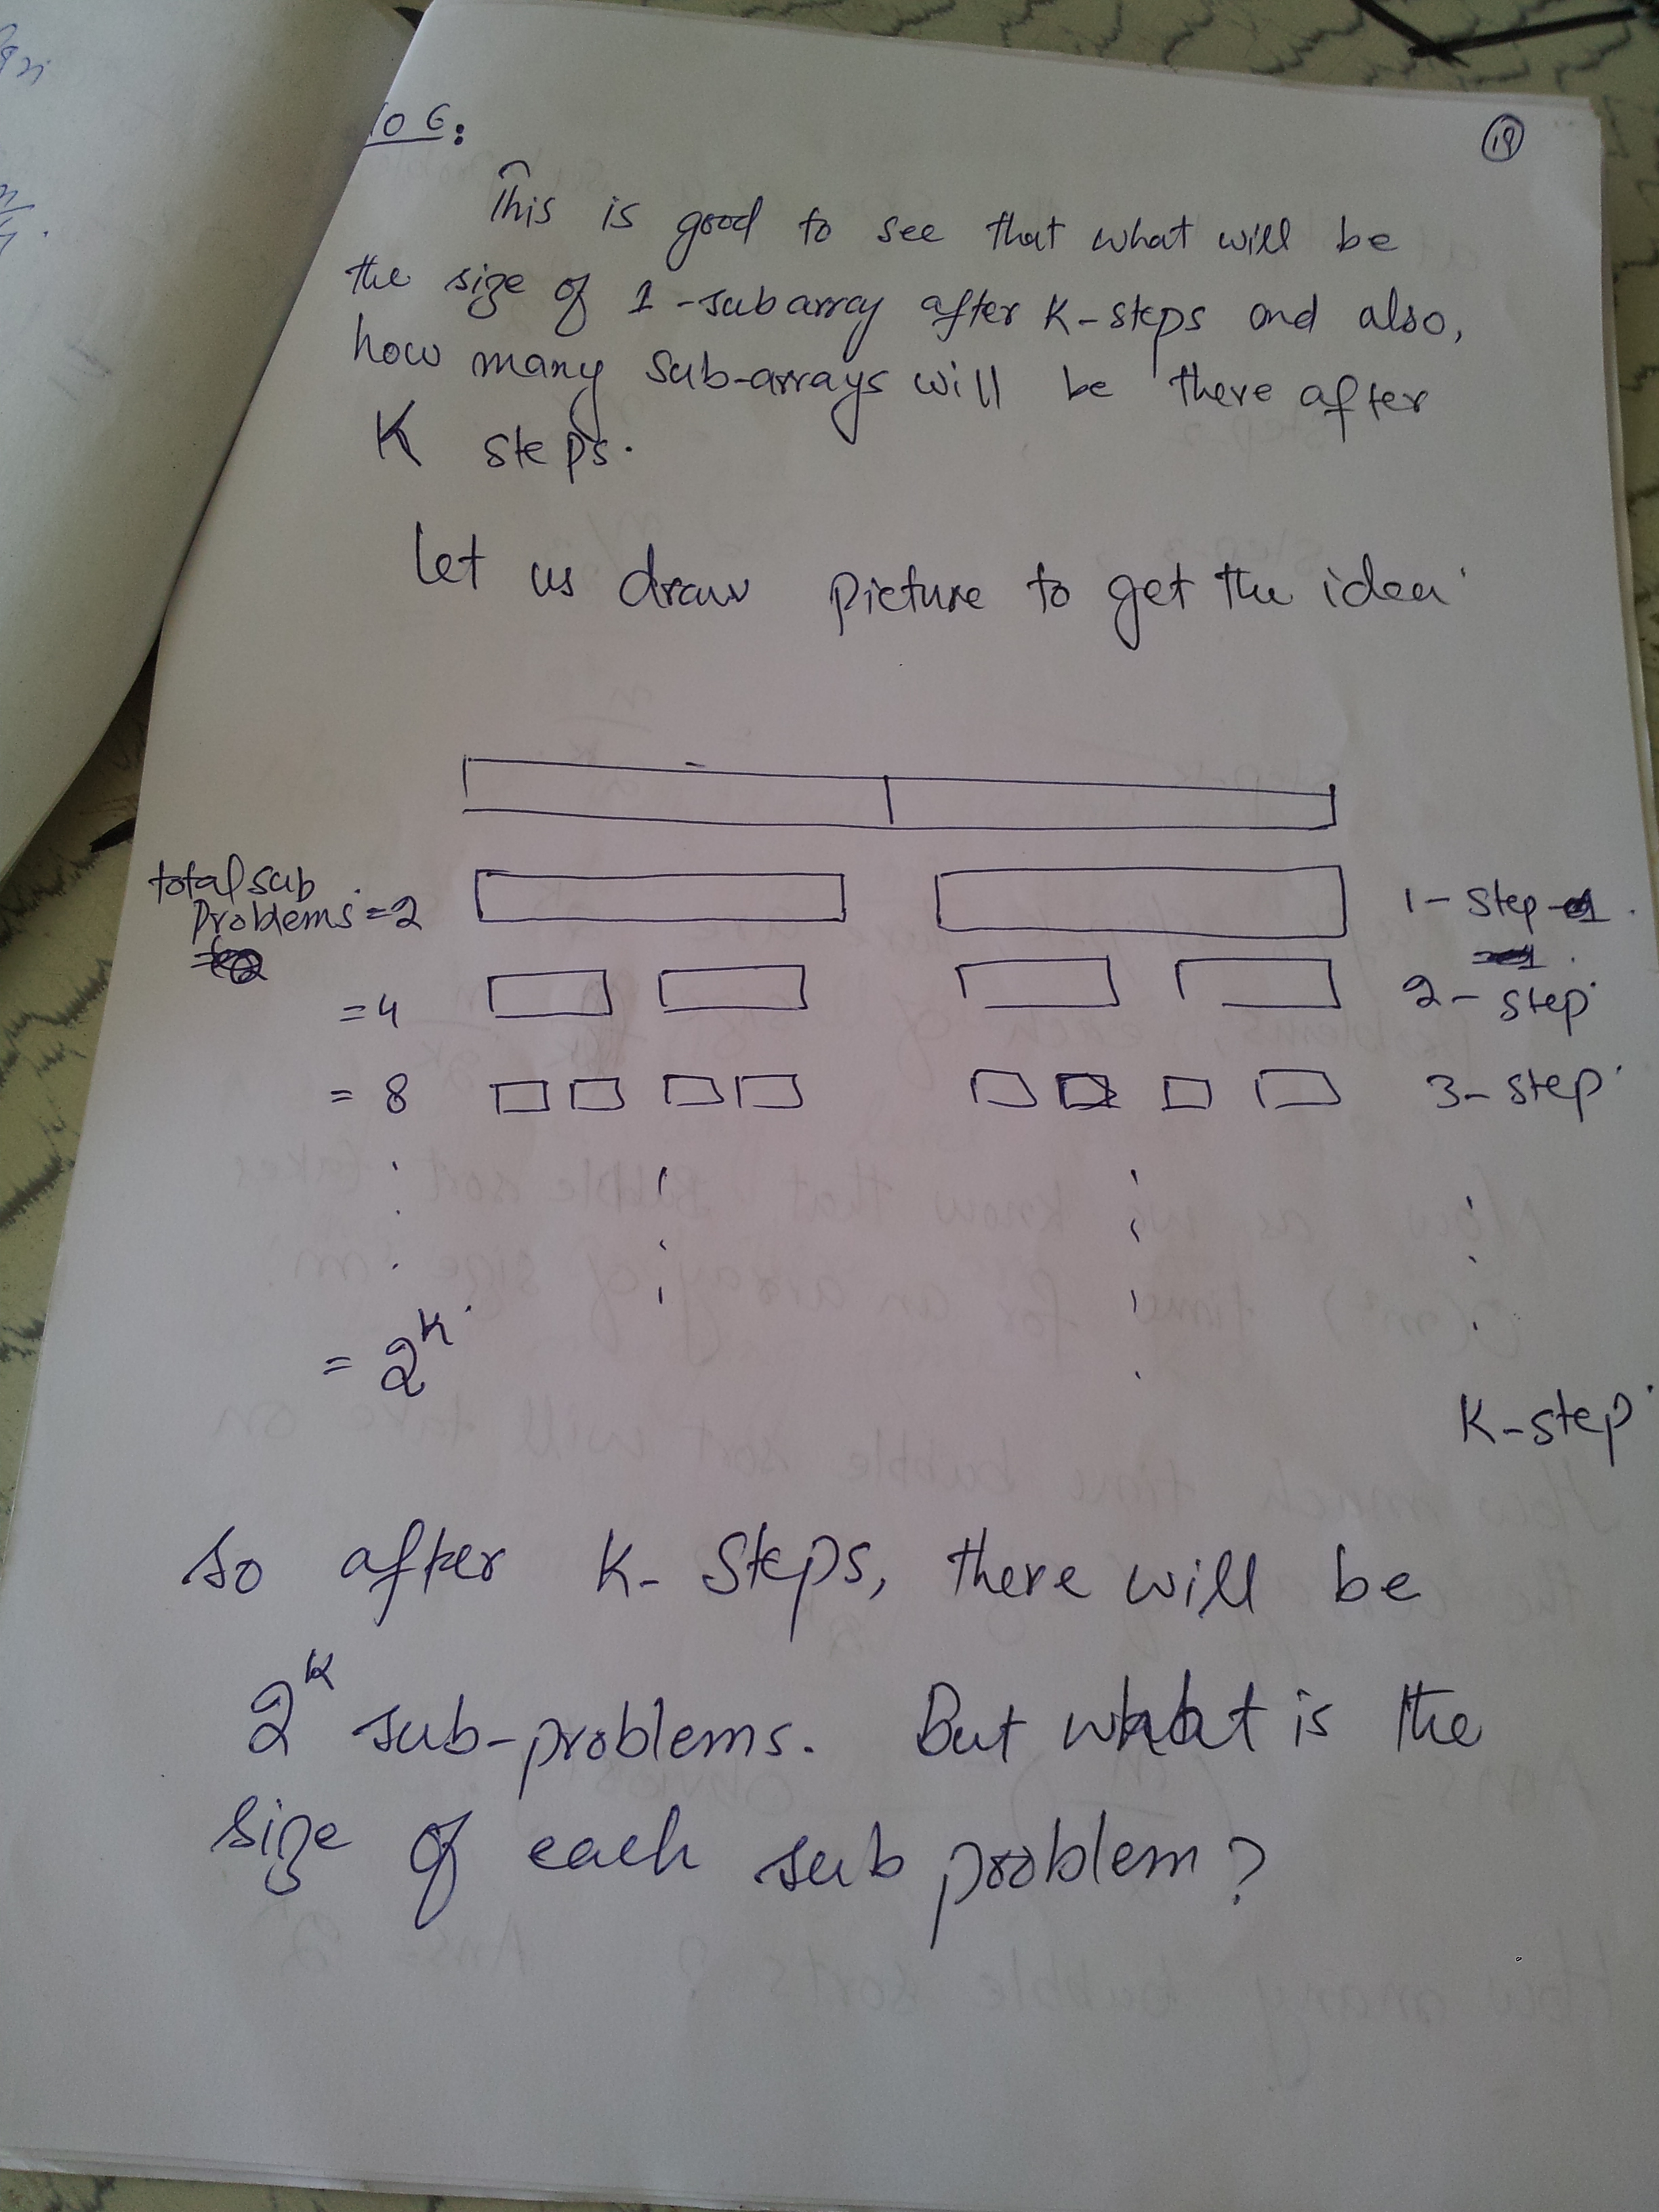 19
This is good to see that what will be
the size of 1-subarray after K-steps and also,
how many sub-arrays will be there after
K steps.
let us draw picture to get the idea.
total sub
problems = 2
1-step
= 4
2-step.
= 8
3-step.
= 2^k.
K-step.
so after K-steps, there will be
2^k sub-problems. But what is the
size of each sub problem?